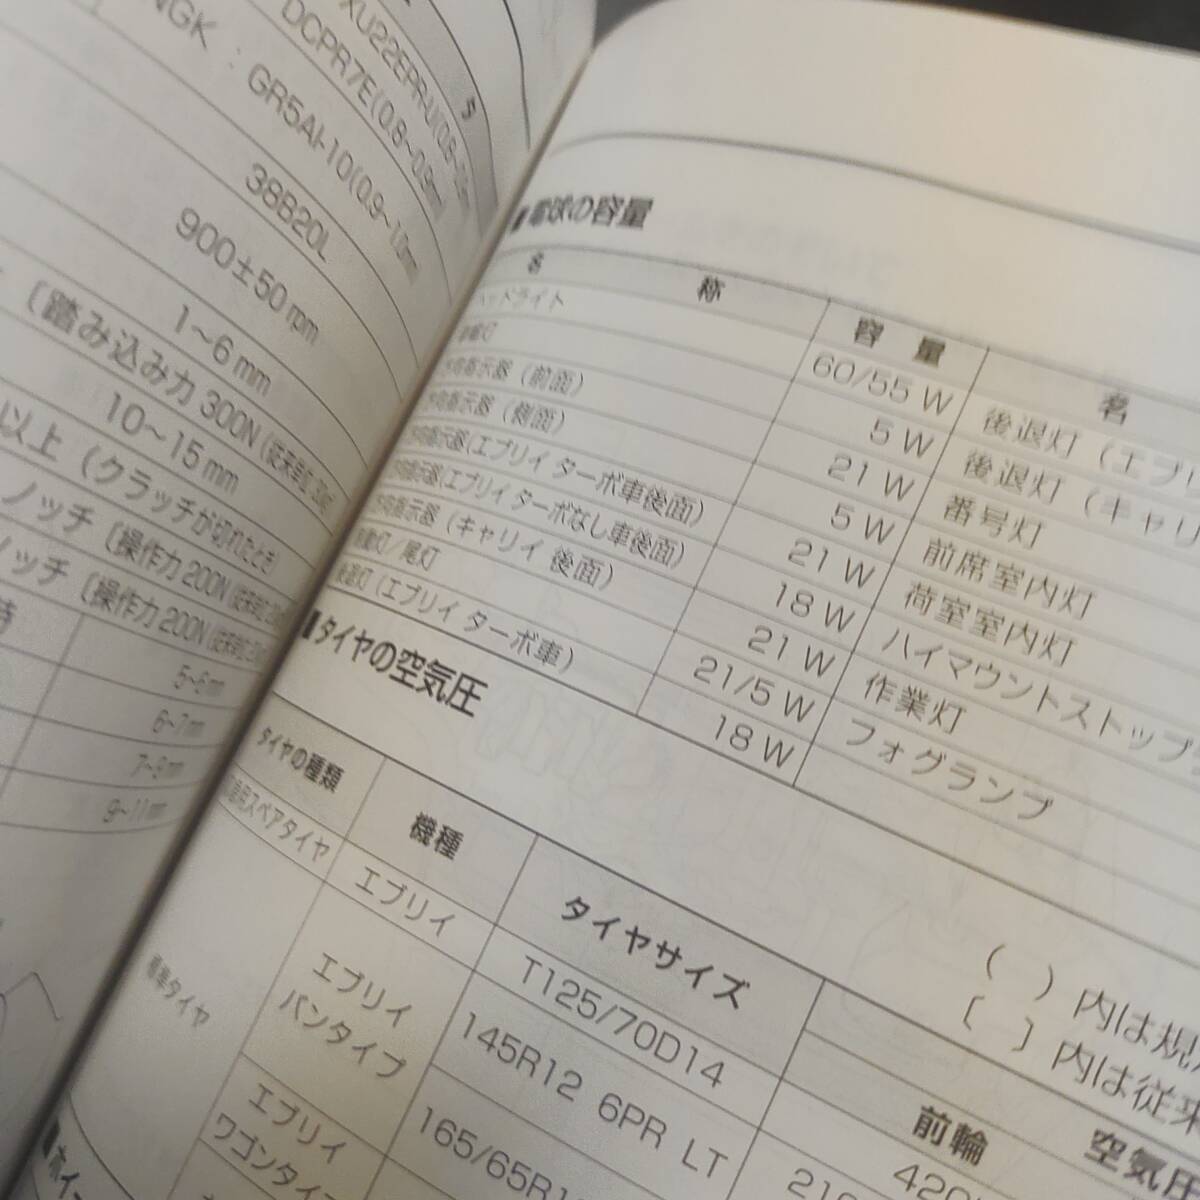 XU22EPR-U(0.8~0.9mm
DCPR7E(0.8~0.9mm)
NGK : GR5AI-10(0.9~1.0mm
38B20L
900±50 rpm
1~6 mm
〔踏み込み力 300N
10~15 mm
以上 (クラッチが切れたとき
ノッチ 〔操作力 200N
ノッチ 〔操作力 200N
時
5~6 mm
6~7 mm
7~8 mm
9~11 mm
■電球の容量
名 称 容 量 名
ヘッドライト 60/55 W 後退灯 (エブリ
5 W 後退灯 (キャリ
方向指示器 (前面) 21 W 番号灯
方向指示器 (側面) 5 W 前席室内灯
方向指示器(エブリイ ターボ車後面) 21 W 荷室室内灯
方向指示器(エブリイ ターボなし車後面) 18 W ハイマウントストップ
方向指示器 (キャリイ 後面) 21 W 作業灯
制動灯/尾灯 21/5 W フォグランプ
後退灯 (エブリイ ターボ車) 18 W
■タイヤの空気圧
( ) 内は規
〔 〕内は従来
タイヤの種類 機種 タイヤサイズ 空気圧
前輪
応急用スペアタイヤ エブリイ T125/70D14 420
標準タイヤ エブリイ バンタイプ 145R12 6PR LT
エブリイ ワゴンタイ 165/65R1
■ホイー